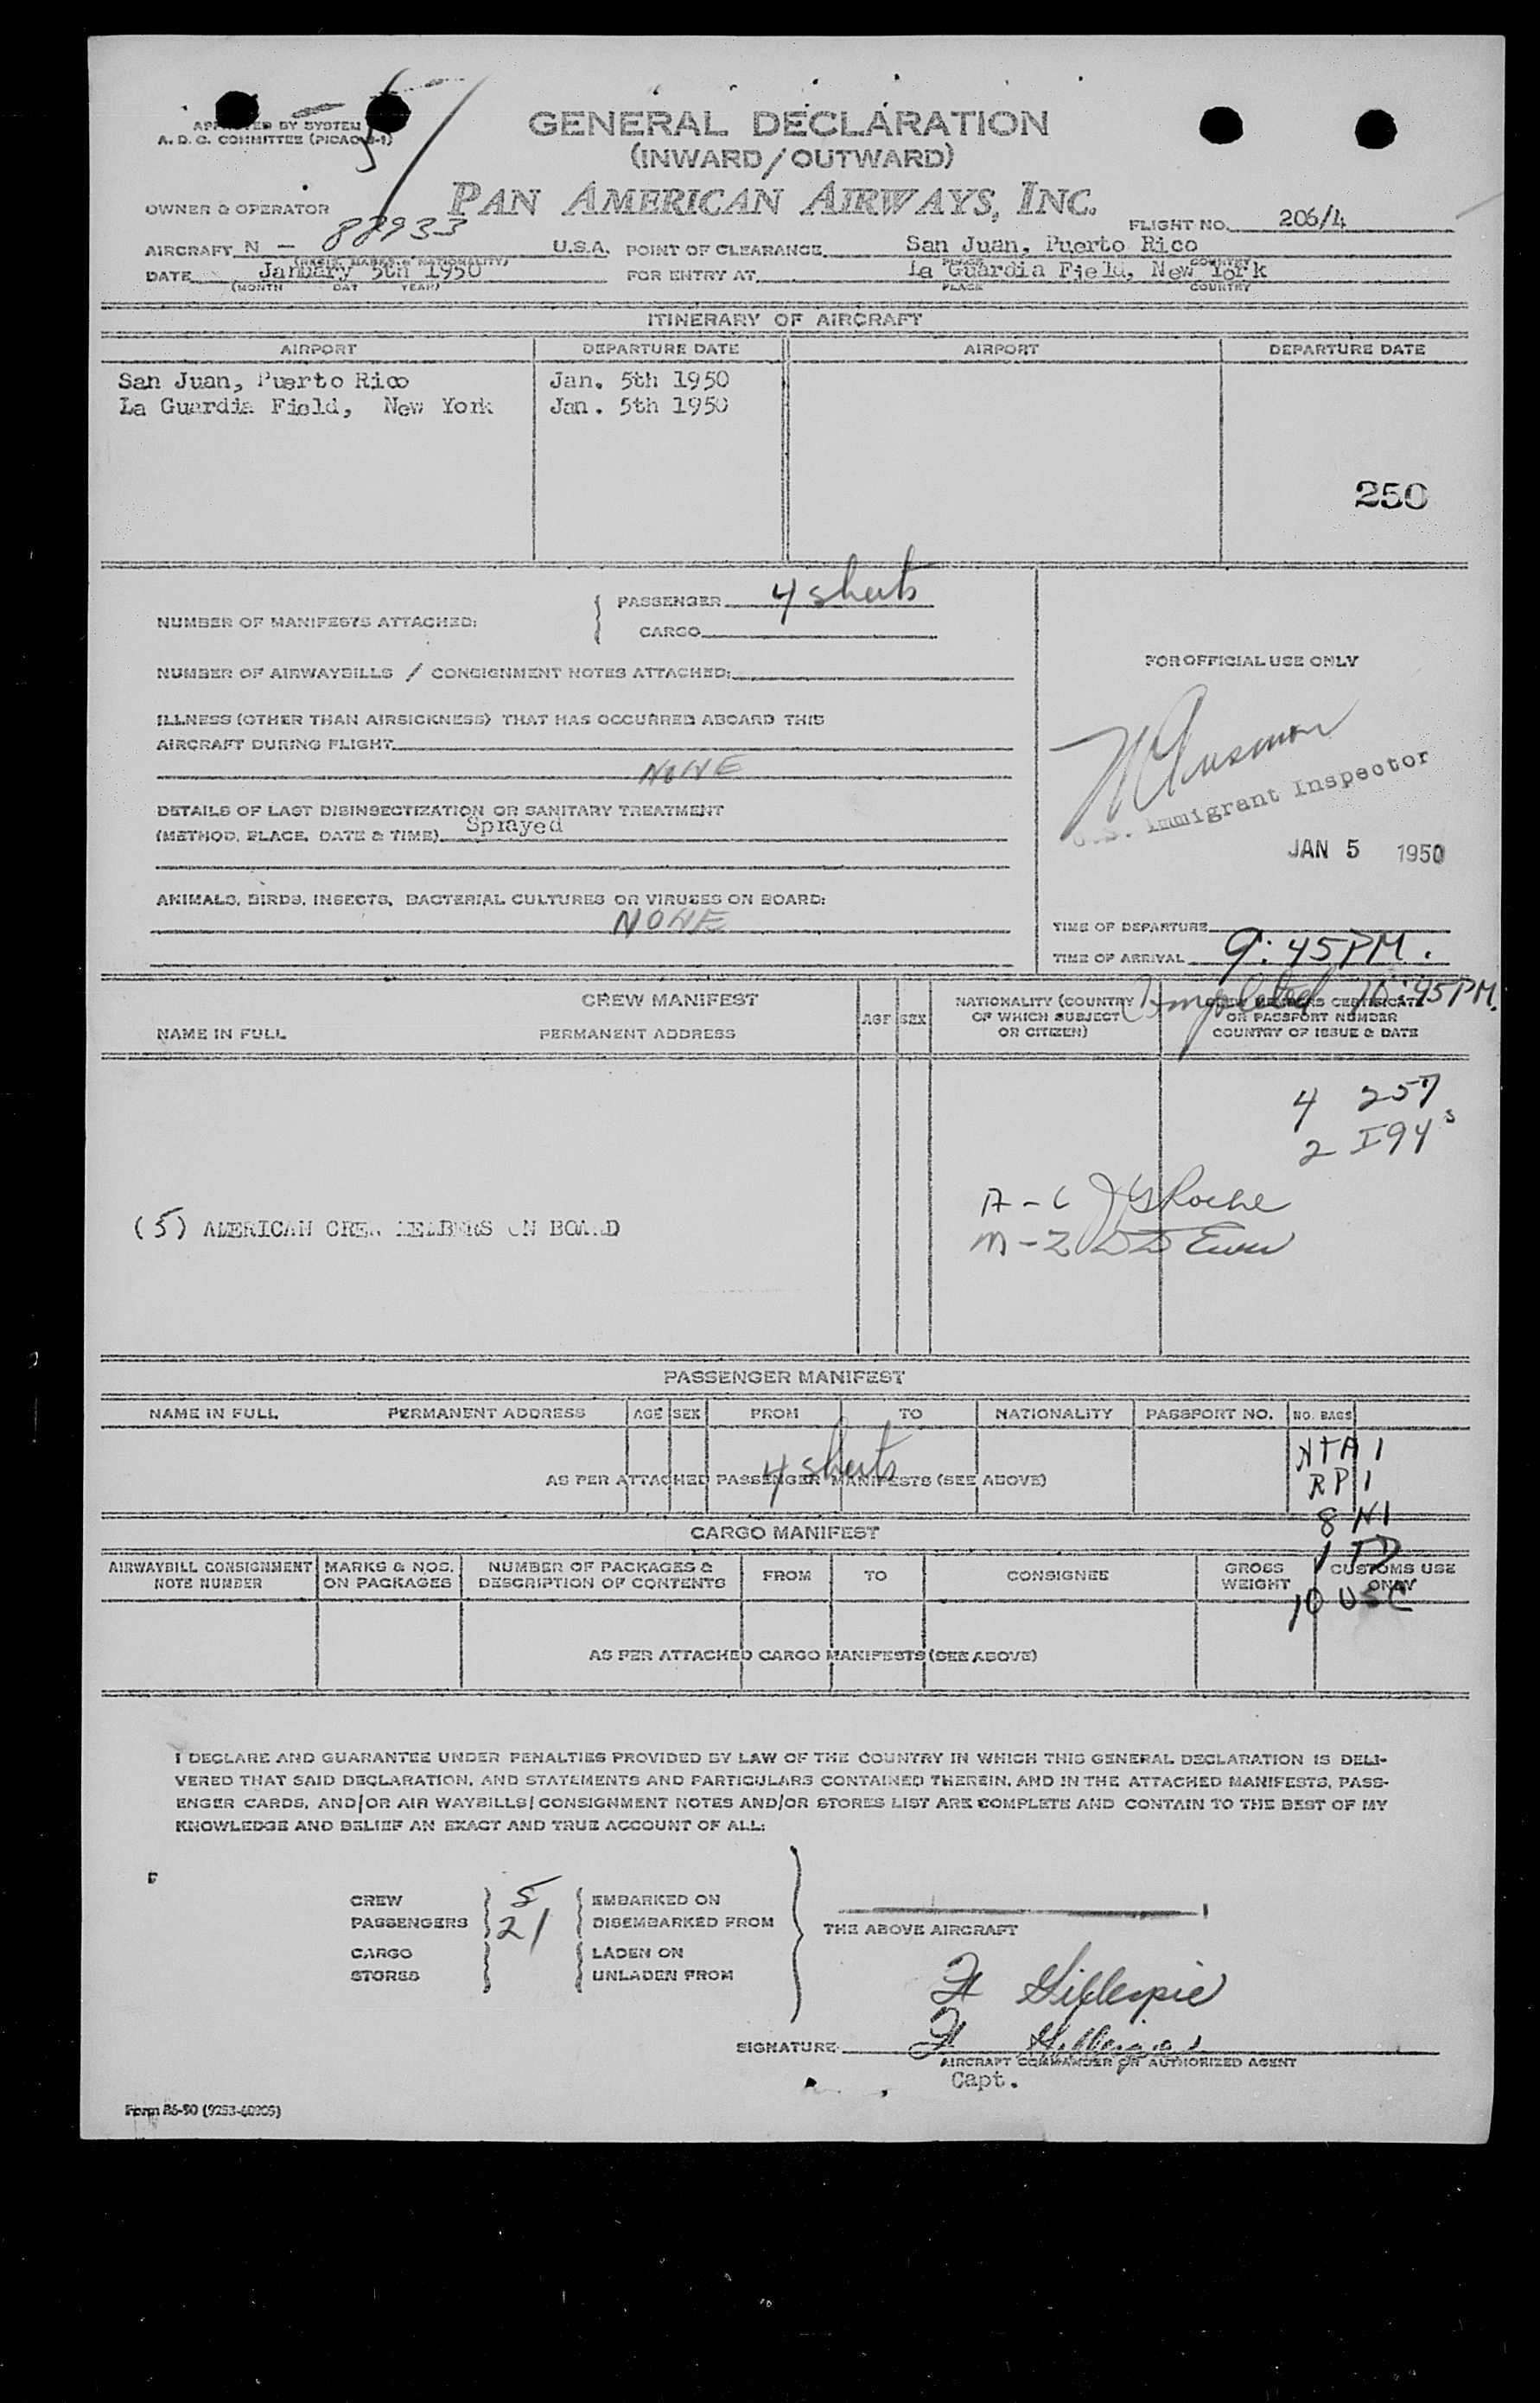 GENERAL DECLARATION
(INWARD/OUTWARD)
BY SYSTEM
A. D. C. COMMITTEE (PICAO
PAN AMERICAN AIRWAYS, INC.
OWNER & OPERATOR
FLIGHT NO. 206/4
AIRCRAFT N - 88933 U.S.A. POINT OF CLEARANCE San Juan, Puerto Rico
DATE January 5th 1950 FOR ENTRY AT La Guardia Field, New York
(MONTH DAY YEAR) PLACE COUNTRY
ITINERARY OF AIRCRAFT
AIRPORT DEPARTURE DATE AIRPORT DEPARTURE DATE
San Juan, Puerto Rico Jan. 5th 1950
La Guardia Field, New York Jan. 5th 1950
250
NUMBER OF MANIFESTS ATTACHED: PASSENGER 4 sheets
CARGO
NUMBER OF AIRWAYBILLS / CONSIGNMENT NOTES ATTACHED:
ILLNESS (OTHER THAN AIRSICKNESS) THAT HAS OCCURRED ABOARD THIS
AIRCRAFT DURING FLIGHT
NONE
DETAILS OF LAST DISINSECTIZATION OR SANITARY TREATMENT
(METHOD, PLACE, DATE & TIME) Sprayed
ANIMALS, BIRDS, INSECTS, BACTERIAL CULTURES OR VIRUSES ON BOARD:
NONE
FOR OFFICIAL USE ONLY
U.S. Immigrant Inspector
JAN 5 1950
TIME OF DEPARTURE
TIME OF ARRIVAL 9:45PM.
Completed 10:45PM.
CREW MANIFEST
NAME IN FULL PERMANENT ADDRESS AGE SEX NATIONALITY (COUNTRY OF WHICH SUBJECT OR CITIZEN) CREW MEMBERS CERTIFICATE OR PASSPORT NUMBER COUNTRY OF ISSUE & DATE
4 257
2 I94s
A - L J G Roche
M - Z D D
(5) AMERICAN CREW MEMBERS ON BOARD
PASSENGER MANIFEST
NAME IN FULL PERMANENT ADDRESS AGE SEX FROM TO NATIONALITY PASSPORT NO. NO. BAGS
4 sheets
AS PER ATTACHED PASSENGER MANIFESTS (SEE ABOVE)
1
RP 1
8 NI
1 TD
10 USC
CARGO MANIFEST
AIRWAYBILL CONSIGNMENT NOTE NUMBER MARKS & NOS. ON PACKAGES NUMBER OF PACKAGES & DESCRIPTION OF CONTENTS FROM TO CONSIGNEE GROSS WEIGHT CUSTOMS USE ONLY
AS PER ATTACHED CARGO MANIFESTS (SEE ABOVE)
I DECLARE AND GUARANTEE UNDER PENALTIES PROVIDED BY LAW OF THE COUNTRY IN WHICH THIS GENERAL DECLARATION IS DELI-
VERED THAT SAID DECLARATION, AND STATEMENTS AND PARTICULARS CONTAINED THEREIN, AND IN THE ATTACHED MANIFESTS, PASS-
ENGER CARDS, AND/OR AIR WAYBILLS/CONSIGNMENT NOTES AND/OR STORES LIST ARE COMPLETE AND CONTAIN TO THE BEST OF MY
KNOWLEDGE AND BELIEF AN EXACT AND TRUE ACCOUNT OF ALL:
CREW 5 EMBARKED ON
PASSENGERS 21 DISEMBARKED FROM
THE ABOVE AIRCRAFT
CARGO LADEN ON
STORES UNLADEN FROM
Gillespie
SIGNATURE Gillespie
AIRCRAFT COMMANDER OR AUTHORIZED AGENT
Capt.